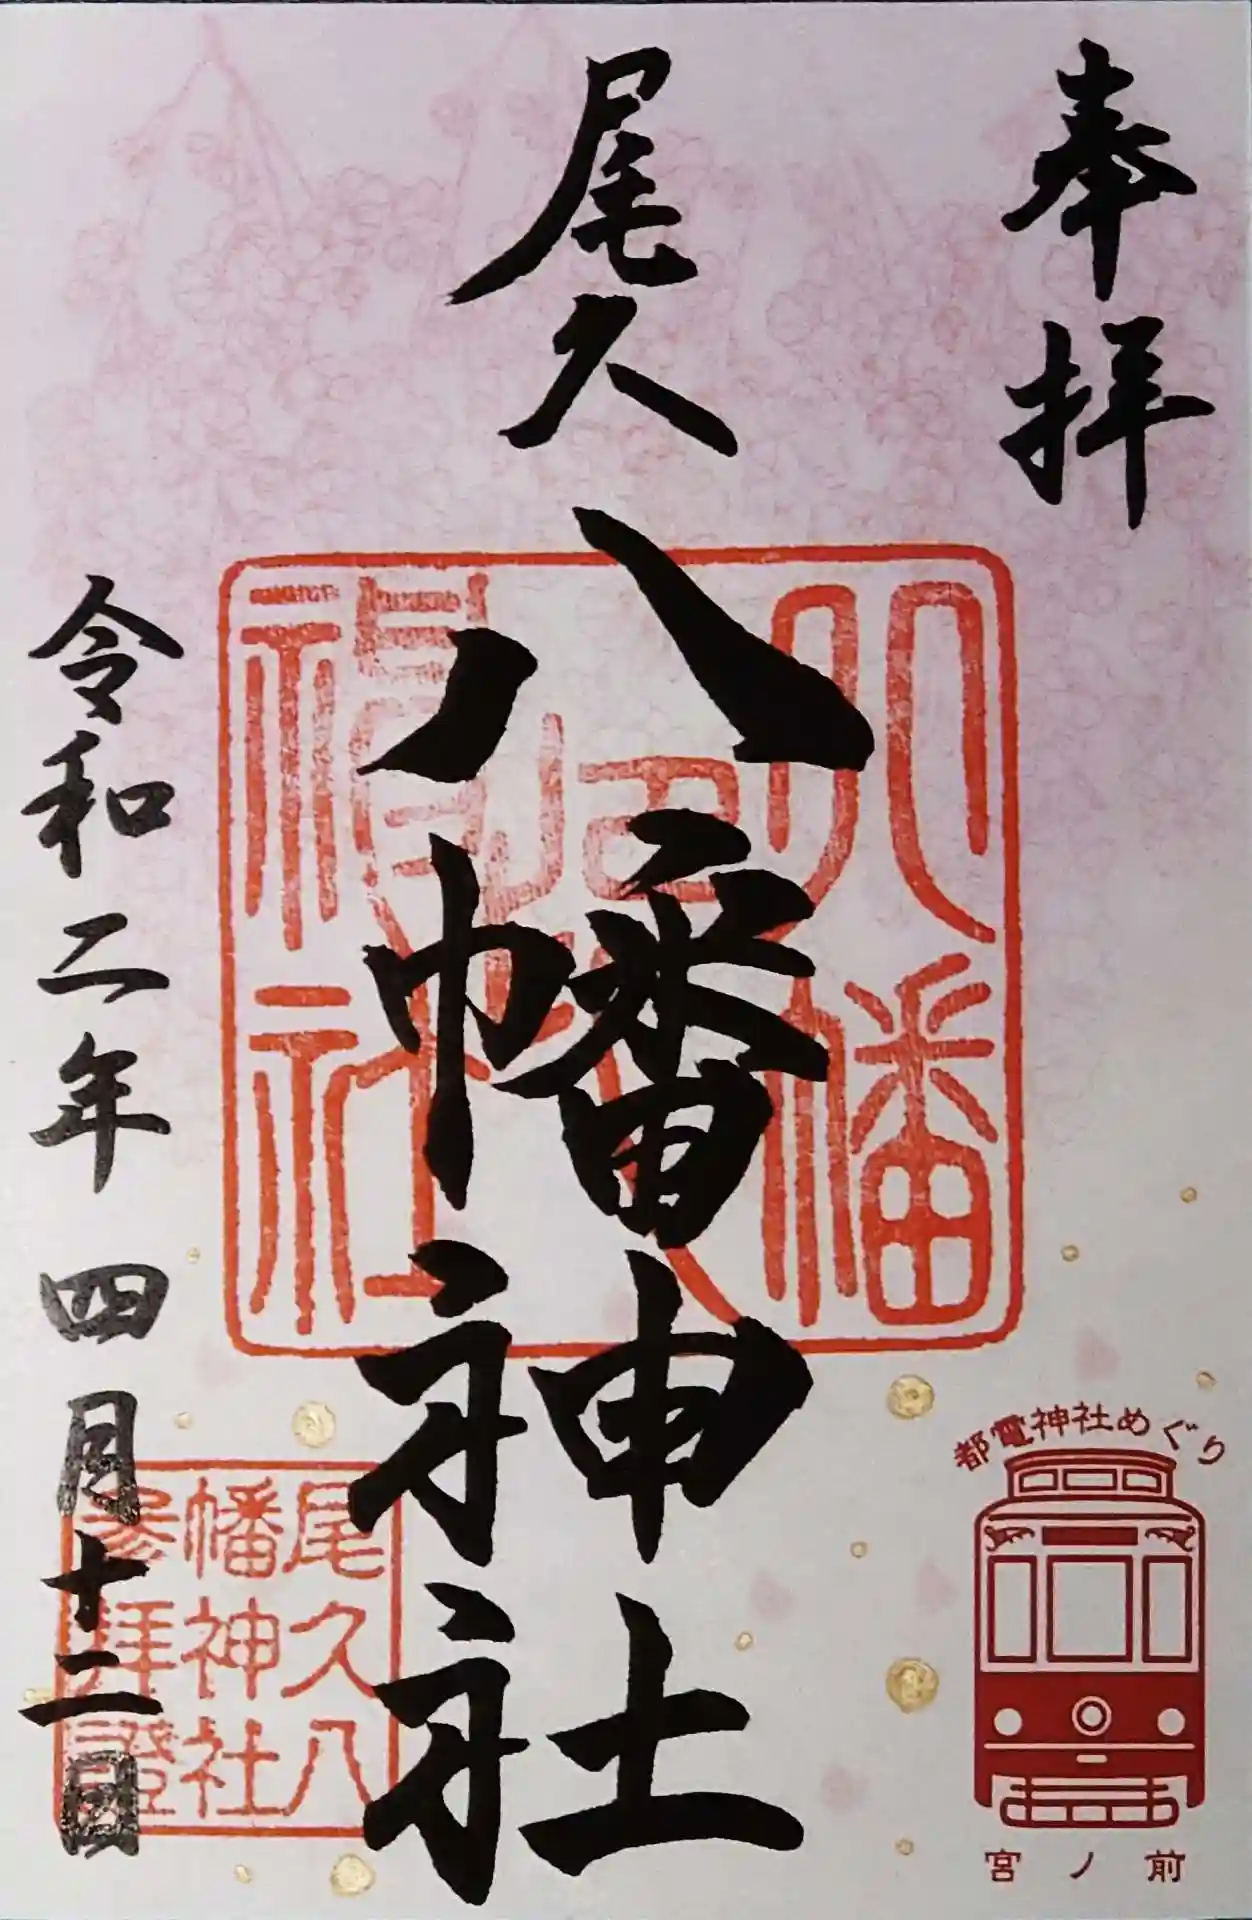 奉拝
尾久
八幡神社
令和二年四月十二日
尾久八
幡神社
参拝證
都電神社めぐり
宮ノ前